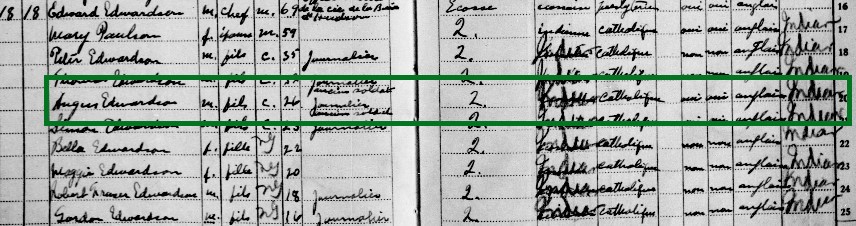 18 18 Edward Edwardson m. chef m. 69 de la cie de la Baie d'Hudson Ecosse ecossais presbytérien oui oui anglais 16
Mary Paulson f. épouse m. 59 2. indienne catholique oui oui anglais Indian 17
Peter Edwardson m. fils c. 35 journalier 2. catholique non non anglais Indian 18
Thomas Edwardson m. fils c. journalier ancien soldat 2. catholique oui oui anglais Indian 19
Angus Edwardson m. fils c. 26 journalier ancien soldat 2. catholique oui oui anglais Indian 20
Simon Edwardson m. fils c. 25 journalier 2. catholique anglais Indian
Bella Edwardson f. fille 22 2. catholique non non anglais Indian 22
Maggie Edwardson f. fille 20 2. catholique non non anglais Indian 23
Robert Fraser Edwardson m. fils 18 journalier 2. catholique non non anglais Indian 24
Gordon Edwardson m. fils 16 journalier 2. catholique non non anglais Indian 25